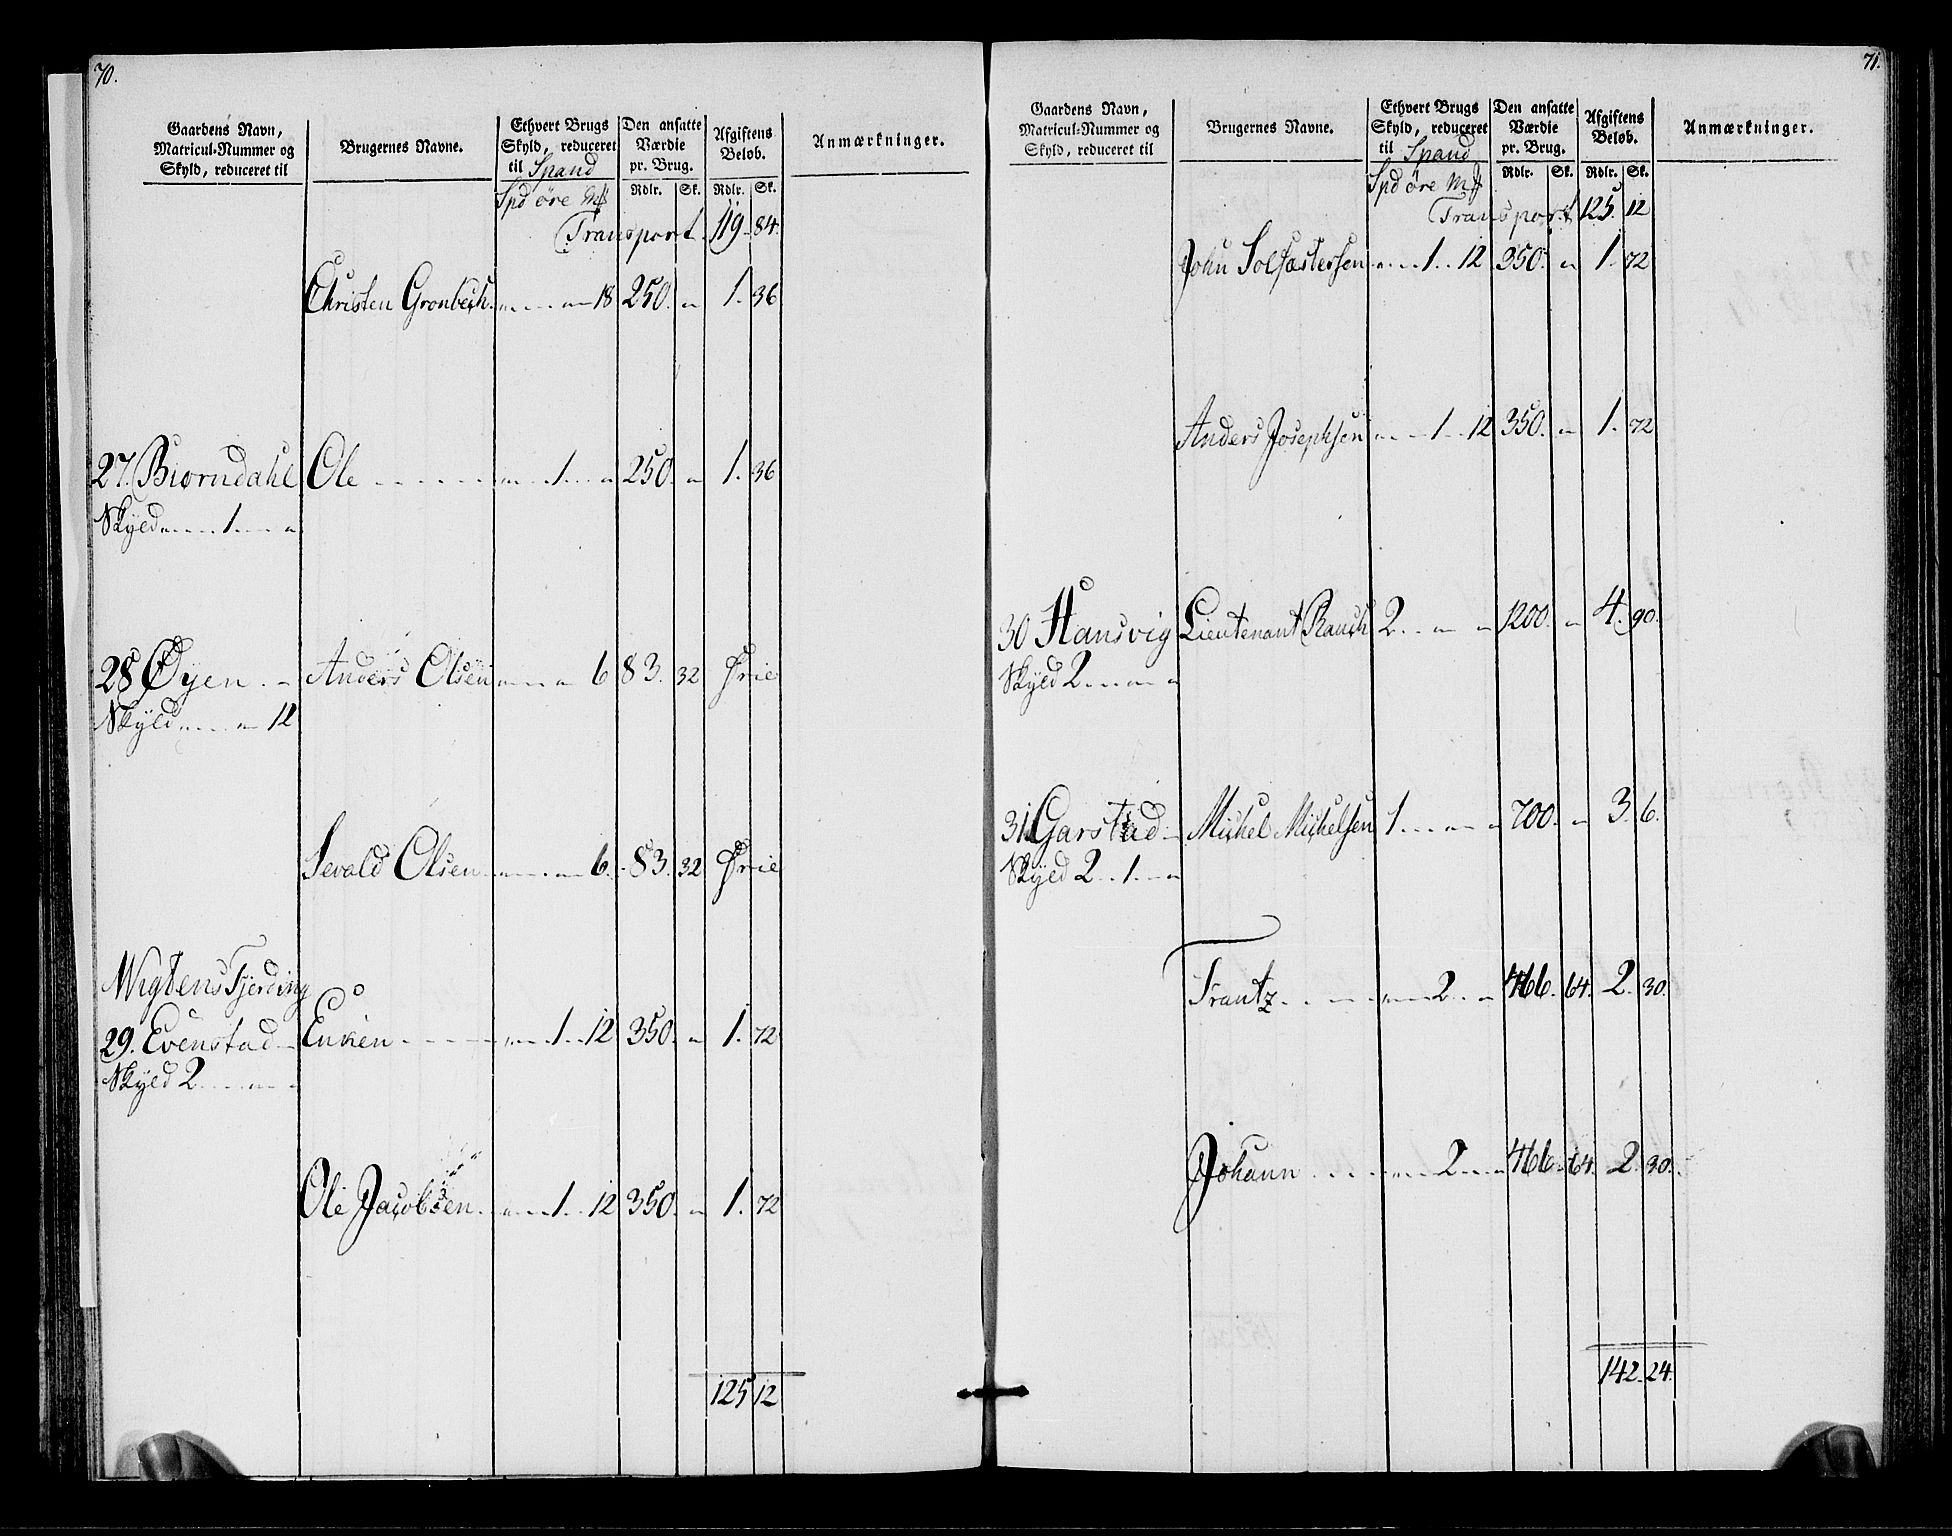 70.
Gaardens Navn, Matricul-Nummer og Skyld, reduceret til
Brugernes Navne.
Ethvert Brugs Skyld, reduceret til Spand
Den ansatte Værdie pr. Brug.
Afgiftens Beløb.
Anmærkninger.
Spd øre Mk Rdlr. Sk. Rdlr. Sk.
Transport 119. 84.
Christen Gronbech 18 250. " 1. 36
27. Biorndahl Ole 1. " 250. " 1. 36
Skyld 1. "
28 Øyen Anders Olsen 6 83. 32 Frie
Skyld 12
Sevald Olsen 6. 83. 32 Frie
Wigtens Fjerding
29. Evenstad Enken 1. 12 350. " 1. 72
Skyld 2
Ole Jacobsen 1. 12 350. " 1. 72
125 12
71.
Gaardens Navn, Matricul-Nummer og Skyld, reduceret til
Brugernes Navne.
Ethvert Brugs Skyld, reduceret til Spand
Den ansatte Værdie pr. Brug.
Afgiftens Beløb.
Anmærkninger.
Spd øre Mk Rdlr. Sk. Rdlr. Sk.
Transport 125. 12
John Solfæstersen 1. 12 350. " 1. 72
Anders Josephsen 1. 12 350. " 1. 72
30 Hansvig Lieutenant Rauch 2. " " 1200. " 4. 90.
Skyld 2. " "
31 Garstad Michel Michelsen 1. " " 700. " 3. 6.
Skyld 2. 1. "
Frantz 2. " 466. 64. 2. 30.
Johann 2. " 466. 64. 2. 30.
142. 24.